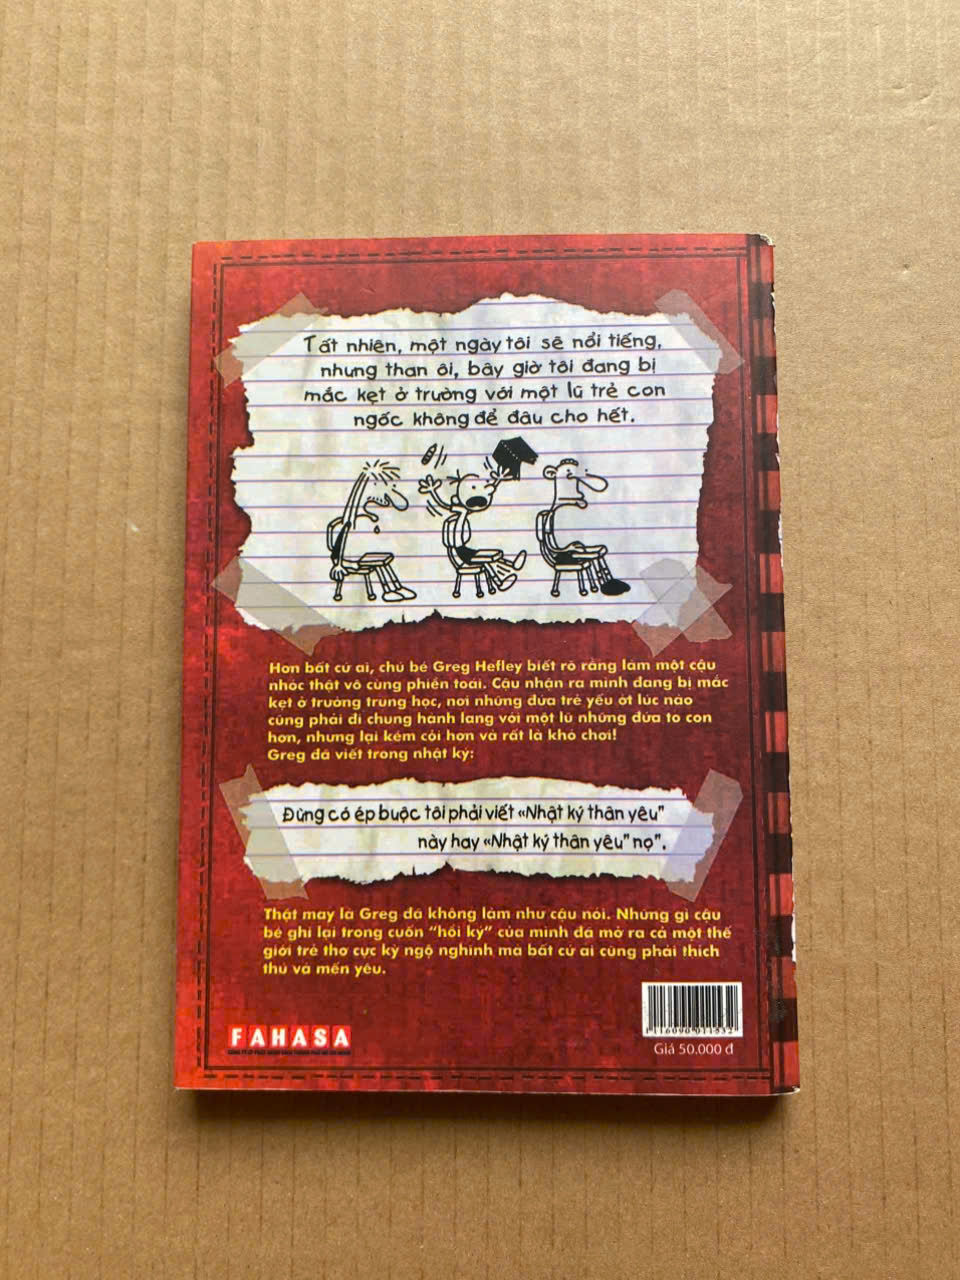 Tất nhiên, một ngày tôi sẽ nổi tiếng,
nhưng than ôi, bây giờ tôi đang bị
mắc kẹt ở trường với một lũ trẻ con
ngốc không để đâu cho hết.
Hơn bất cứ ai, chú bé Greg Hefley biết rõ rằng làm một cậu
nhóc thật vô cùng phiền toái. Cậu nhận ra mình đang bị mắc
kẹt ở trường trung học, nơi những đứa trẻ yếu ớt lúc nào
cũng phải đi chung hành lang với một lũ những đứa to con
hơn, nhưng lại kém cỏi hơn và rất là khó chơi!
Greg đã viết trong nhật ký:
Đừng có ép buộc tôi phải viết «Nhật ký thân yêu"
này hay «Nhật ký thân yêu" nọ".
Thật may là Greg đã không làm như cậu nói. Những gì cậu
bé ghi lại trong cuốn "hồi ký" của mình đã mở ra cả một thế
giới trẻ thơ cực kỳ ngộ nghĩnh mà bất cứ ai cũng phải thích
thú và mến yêu.
1116090 011532
FAHASA
Giá 50.000 đ